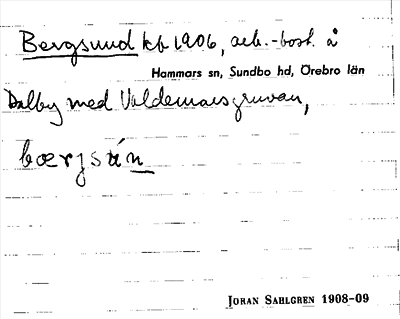 Bergsund kb 1906, arb.-bost. å
Hammars sn, Sundbo hd, Örebro län
Dalby med Valdemarsgruvan,
bærjsún
JORAN SAHLGREN 1908-09